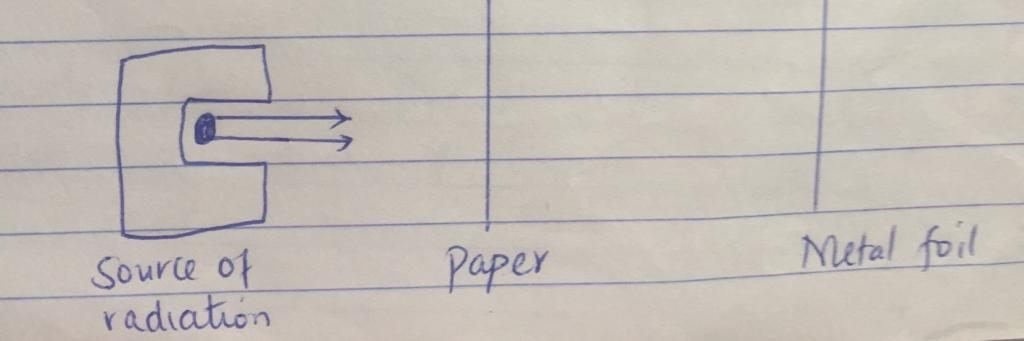 Source of
radiation
Paper
Metal foil